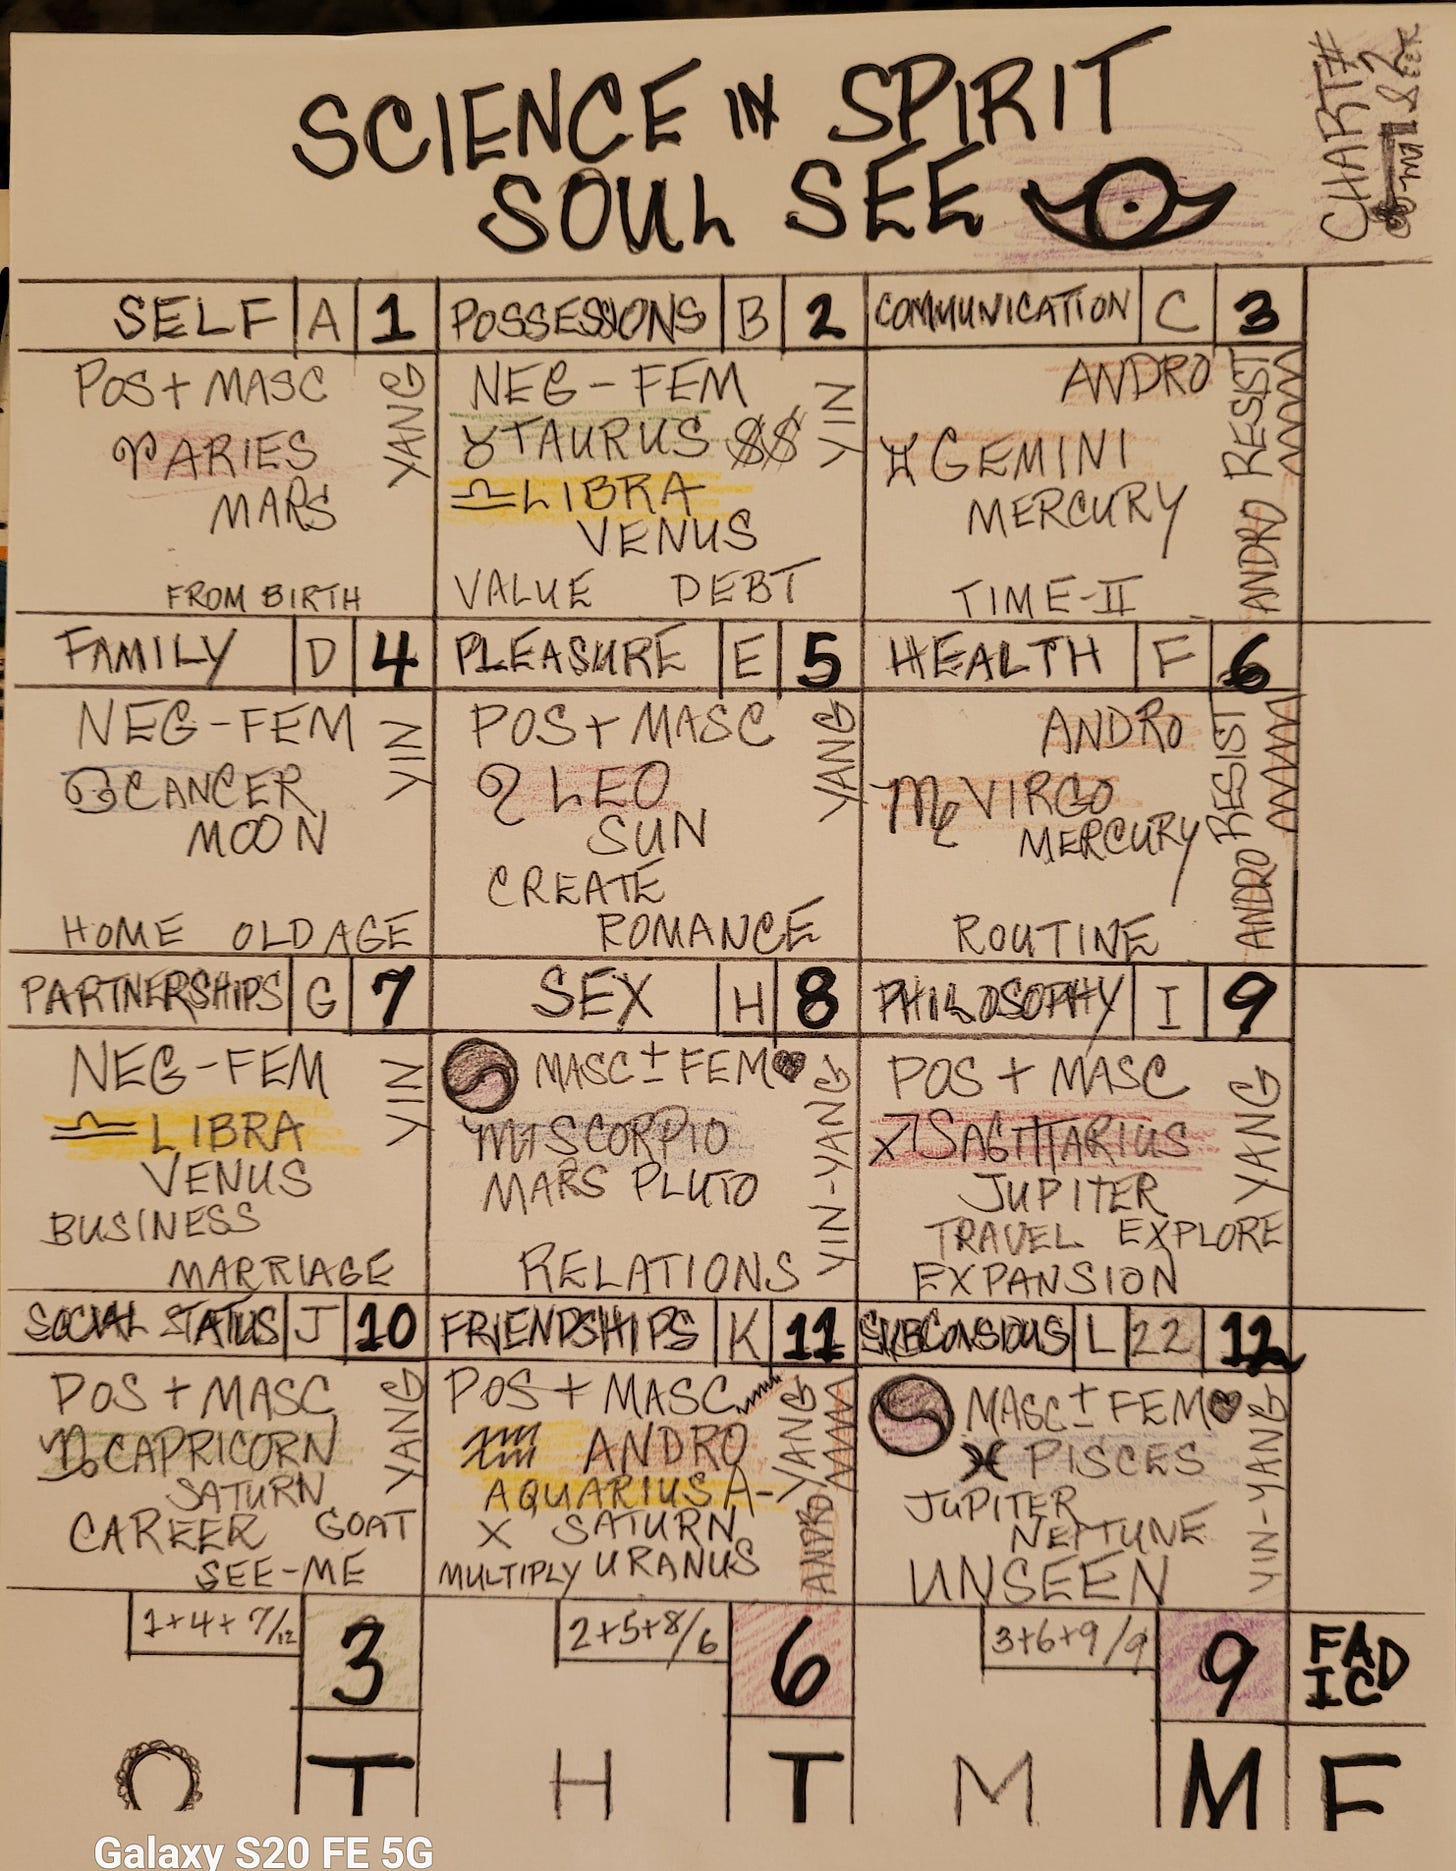 SCIENCE IN SPIRIT
SOUL SEE
CHART#
2
SELF A 1
POS + MASC
YANG
♈ ARIES
MARS
FROM BIRTH
POSSESSIONS B 2
NEG - FEM
YIN
♉ TAURUS $$
♎ LIBRA
VENUS
VALUE DEBT
COMMUNICATION C 3
ANDRO
ANDRO RESIST
♊ GEMINI
MERCURY
TIME-II
FAMILY D 4
NEG-FEM
YIN
♋ CANCER
MOON
HOME OLD AGE
PLEASURE E 5
POS + MASC
YANG
♌ LEO
SUN
CREATE
ROMANCE
HEALTH F 6
ANDRO
ANDRO RESIST
♍ VIRGO
MERCURY
ROUTINE
PARTNERSHIPS G 7
NEG-FEM
YIN
♎ LIBRA
VENUS
BUSINESS
MARRIAGE
SEX H 8
MASC ± FEM ♥
YIN-YANG
♏ SCORPIO
MARS PLUTO
RELATIONS
PHILOSOPHY I 9
POS + MASC
YANG
♐ SAGITTARIUS
JUPITER
TRAVEL EXPLORE
EXPANSION
SOCIAL STATUS J 10
POS + MASC
YANG
♑ CAPRICORN
SATURN
CAREER GOAT
SEE-ME
FRIENDSHIPS K 11
POS + MASC
ANDRO YANG
♒ ANDRO
AQUARIUS A-
X SATURN
MULTIPLY URANUS
SUBCONSIOUS L 22 12
MASC ± FEM ♥
YIN-YANG
♓ PISCES
JUPITER
NEPTUNE
UNSEEN
1+4+7/12 3
2+5+8/6 6
3+6+9/9 9
FAD
IC
O T H T M M F
Galaxy S20 FE 5G